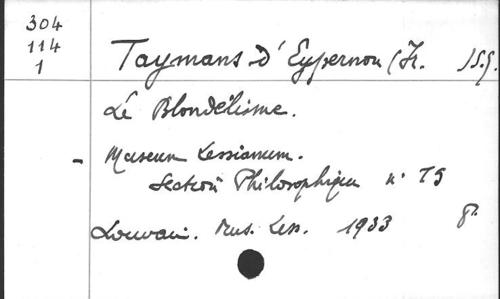 304
114
1
Taymans d'Eypernon (Fr. S.J.
Le Blondélisme.
- Museum Lessianum.
Section Philosophique n° 15
Louvain. Mus. Less. 1933 8°.